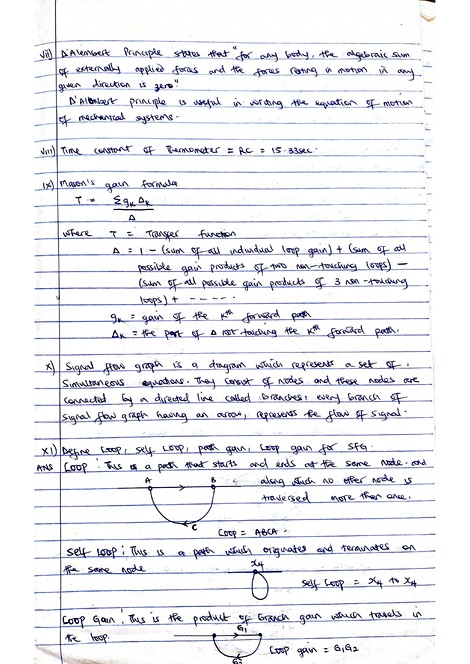 vii) D'Alembert Principle states that "for any body, the algebraic sum
of externally applied forces and the forces resting in motion in any
given direction is zero"
D'Alembert principle is useful in writing the equation of motion
of mechanical systems.
viii) Time constant of Thermometer = RC = 15.33sec.
ix) Mason's gain formula
T = Σ gk Δk
Δ
where T = Transfer function
Δ = 1 - (sum of all individual loop gain) + (sum of all
possible gain products of two non-touching loops) -
(sum of all possible gain products of 3 non-touching
loops) + -----
gk = gain of the Kth forward path
Δk = the part of Δ not touching the Kth forward path.
x) Signal flow graph is a diagram which represents a set of
simultaneous equations. They consist of nodes and these nodes are
connected by a directed line called branches. every branch of
signal flow graph having an arrow, represents the flow of signal.
xi) Define Loop, self Loop, path gain, Loop gain for SFG.
ANS Loop: This is a path that starts and ends at the same node and
along which no other node is
traversed more than once.
A B
C
Loop = ABCA.
Self Loop: This is a path which originates and terminates on
the same node
x4
self Loop = x4 to x4
Loop Gain: This is the product of branch gain which travels in
the loop.
G1
G2
Loop gain = G1G2